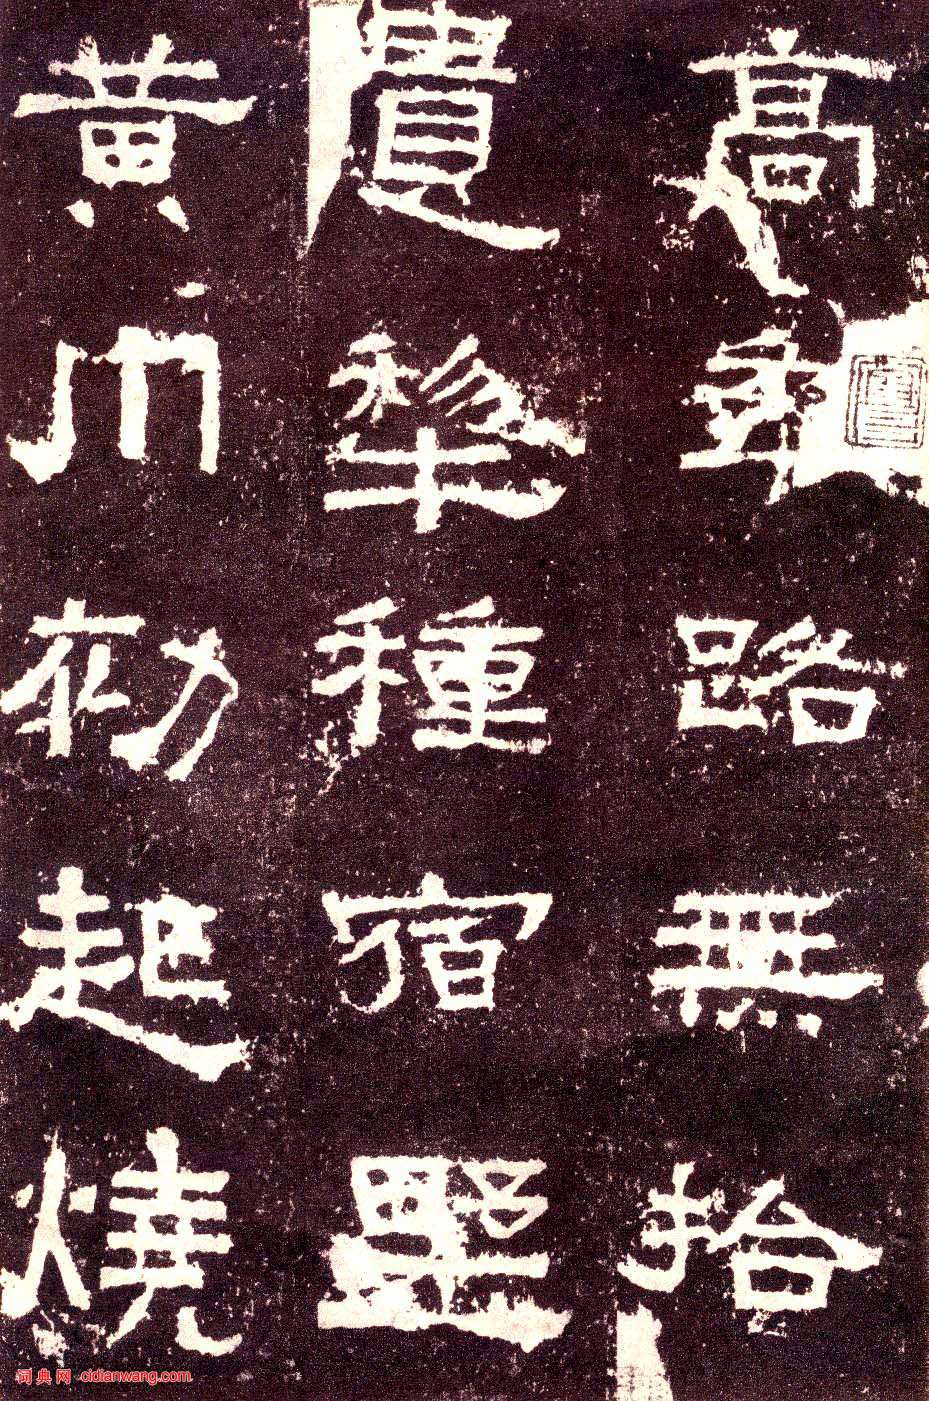 高年路無拾
遺犂種宿野
黃巾初起燒
词典网 cidianwang.com